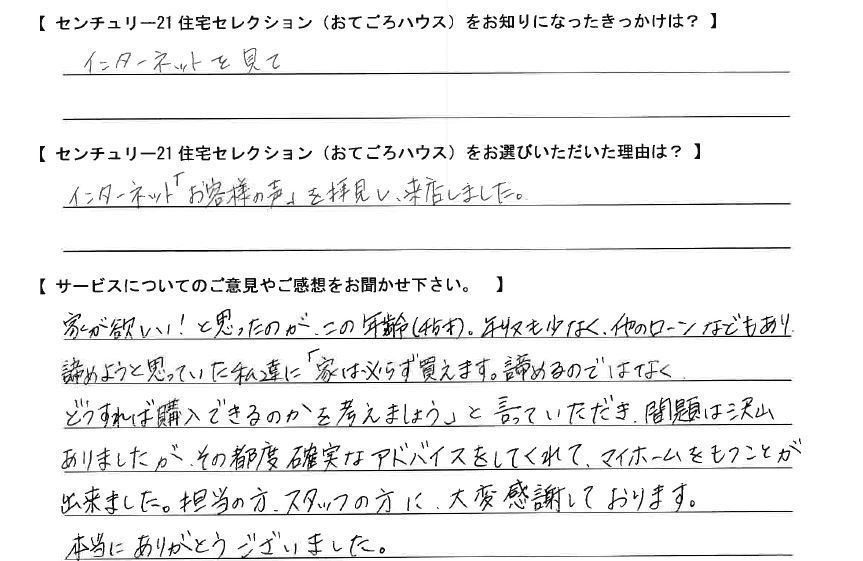 【 センチュリー21 住宅セレクション（おてごろハウス）をお知りになったきっかけは？ 】
インターネットを見て
【 センチュリー21 住宅セレクション（おてごろハウス）をお選びいただいた理由は？ 】
インターネット「お客様の声」を拝見し、来店しました。
【 サービスについてのご意見やご感想をお聞かせ下さい。 】
家が欲しい！と思ったのが、この年齢(46才)。年収も少なく、他のローンなどもあり
諦めようと思っていた私達に「家は必らず買えます。諦めるのではなく
どうすれば購入できるのかを考えましょう」と言っていただき、問題は沢山
ありましたが、その都度確実なアドバイスをしてくれて、マイホームをもつことが
出来ました。担当の方、スタッフの方に、大変感謝しております。
本当にありがとうございました。